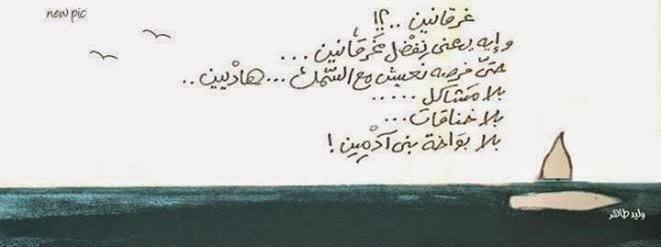 new pic
غرقانين ..؟!
و إيه يعنى نفضل غرقانين ...
حتى فرصه نعيش مع السمك ... هاديين ..
بلا مشاكل .....
بلا خناقات ...
بلا بواخة بنى آدمين !
وليد طاهر